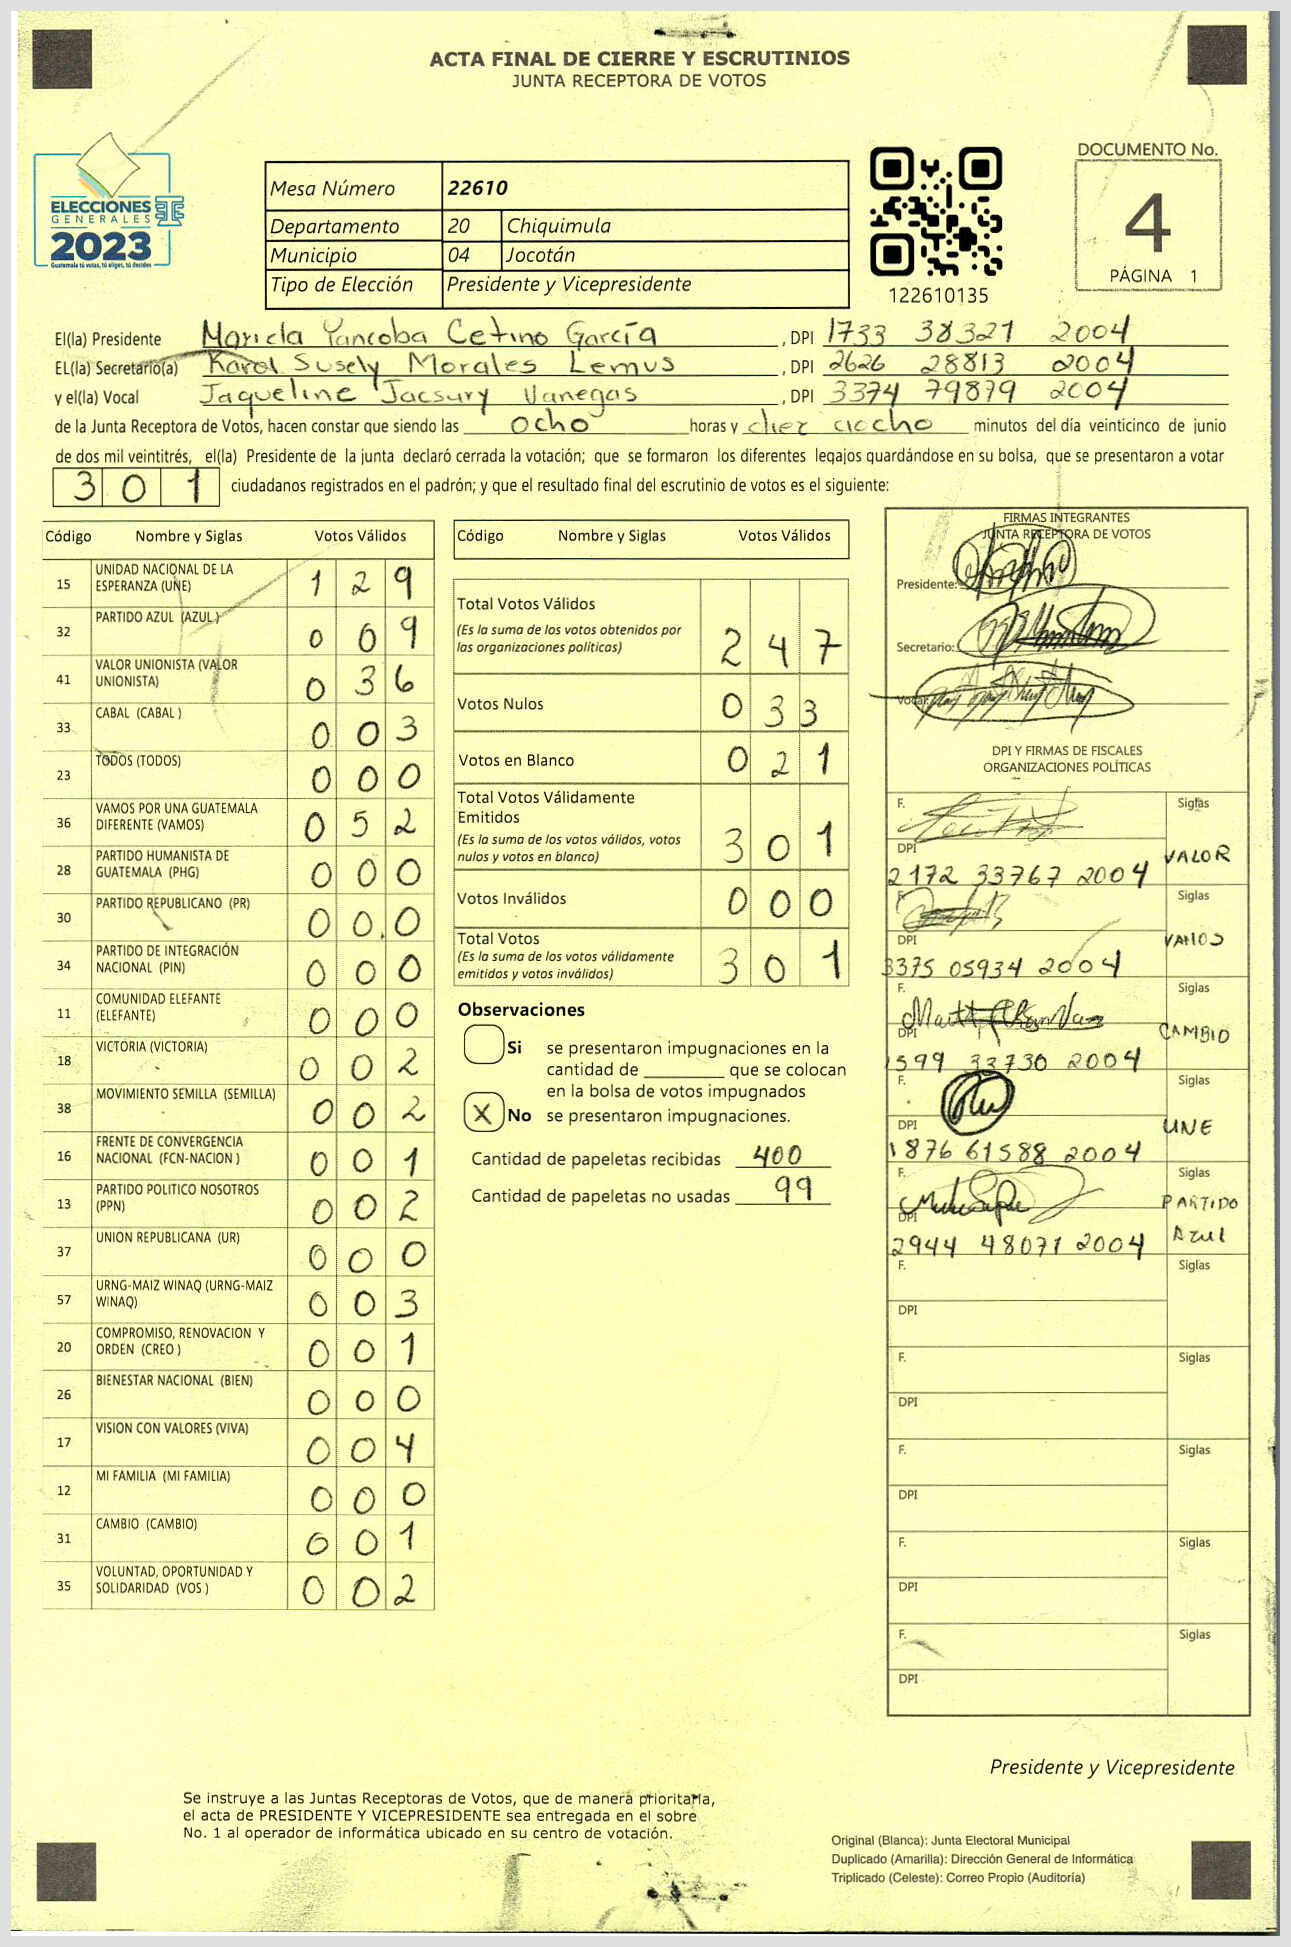 ACTA FINAL DE CIERRE Y ESCRUTINIOS
JUNTA RECEPTORA DE VOTOS
ELECCIONES
GENERALES
2023
Guatemala tú votas, tú eliges, tú decides
Mesa Número 22610
Departamento 20 Chiquimula
Municipio 04 Jocotán
Tipo de Elección Presidente y Vicepresidente
122610135
DOCUMENTO No.
4
PÁGINA 1
El(la) Presidente Maricla Yancoba Cetino García , DPI 1733 38321 2004
EL(la) Secretario(a) Karol Susely Morales Lemus , DPI 2626 28813 2004
y el(la) Vocal Jaqueline Jacsury Vanegas , DPI 3374 79879 2004
de la Junta Receptora de Votos, hacen constar que siendo las ocho horas y diez ciocho minutos del día veinticinco de junio
de dos mil veintitrés, el(la) Presidente de la junta declaró cerrada la votación; que se formaron los diferentes legajos guardándose en su bolsa, que se presentaron a votar
301 ciudadanos registrados en el padrón; y que el resultado final del escrutinio de votos es el siguiente:
Código Nombre y Siglas Votos Válidos
15 UNIDAD NACIONAL DE LA ESPERANZA (UNE) 1 2 9
32 PARTIDO AZUL (AZUL ) 0 0 9
41 VALOR UNIONISTA (VALOR UNIONISTA) 0 3 6
33 CABAL (CABAL ) 0 0 3
23 TODOS (TODOS) 0 0 0
36 VAMOS POR UNA GUATEMALA DIFERENTE (VAMOS) 0 5 2
28 PARTIDO HUMANISTA DE GUATEMALA (PHG) 0 0 0
30 PARTIDO REPUBLICANO (PR) 0 0 0
34 PARTIDO DE INTEGRACIÓN NACIONAL (PIN) 0 0 0
11 COMUNIDAD ELEFANTE (ELEFANTE) 0 0 0
18 VICTORIA (VICTORIA) 0 0 2
38 MOVIMIENTO SEMILLA (SEMILLA) 0 0 2
16 FRENTE DE CONVERGENCIA NACIONAL (FCN-NACION ) 0 0 1
13 PARTIDO POLITICO NOSOTROS (PPN) 0 0 2
37 UNION REPUBLICANA (UR) 0 0 0
57 URNG-MAIZ WINAQ (URNG-MAIZ WINAQ) 0 0 3
20 COMPROMISO, RENOVACION Y ORDEN (CREO ) 0 0 1
26 BIENESTAR NACIONAL (BIEN) 0 0 0
17 VISION CON VALORES (VIVA) 0 0 4
12 MI FAMILIA (MI FAMILIA) 0 0 0
31 CAMBIO (CAMBIO) 0 0 1
35 VOLUNTAD, OPORTUNIDAD Y SOLIDARIDAD (VOS ) 0 0 2
Código Nombre y Siglas Votos Válidos
Total Votos Válidos
(Es la suma de los votos obtenidos por
las organizaciones politicas) 2 4 7
Votos Nulos 0 3 3
Votos en Blanco 0 2 1
Total Votos Válidamente
Emitidos
(Es la suma de los votos válidos, votos
nulos y votos en blanco) 3 0 1
Votos Inválidos 0 0 0
Total Votos
(Es la suma de los votos válidamente
emitidos y votos inválidos) 3 0 1
Observaciones
Si se presentaron impugnaciones en la
cantidad de ________ que se colocan
en la bolsa de votos impugnados
X No se presentaron impugnaciones.
Cantidad de papeletas recibidas 400
Cantidad de papeletas no usadas 99
FIRMAS INTEGRANTES
JUNTA RECEPTORA DE VOTOS
Presidente:
Secretario:
Vocal:
DPI Y FIRMAS DE FISCALES
ORGANIZACIONES POLÍTICAS
F. Siglas
DPI VALOR
2172 33767 2004
F. Siglas
DPI VAMOS
3375 05934 2004
F. Siglas
DPI CAMBIO
1599 33730 2004
F. Siglas
DPI UNE
1876 61588 2004
F. Siglas
DPI PARTIDO
2944 48071 2004 Azul
F. Siglas
DPI
F. Siglas
DPI
F. Siglas
DPI
F. Siglas
DPI
F. Siglas
DPI
Presidente y Vicepresidente
Se instruye a las Juntas Receptoras de Votos, que de manera prioritaria,
el acta de PRESIDENTE Y VICEPRESIDENTE sea entregada en el sobre
No. 1 al operador de informática ubicado en su centro de votación.
Original (Blanca): Junta Electoral Municipal
Duplicado (Amarilla): Dirección General de Informática
Triplicado (Celeste): Correo Propio (Auditoría)